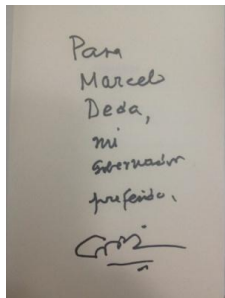 Para
Marcelo
Deda,
mi
Gobernador
preferido.